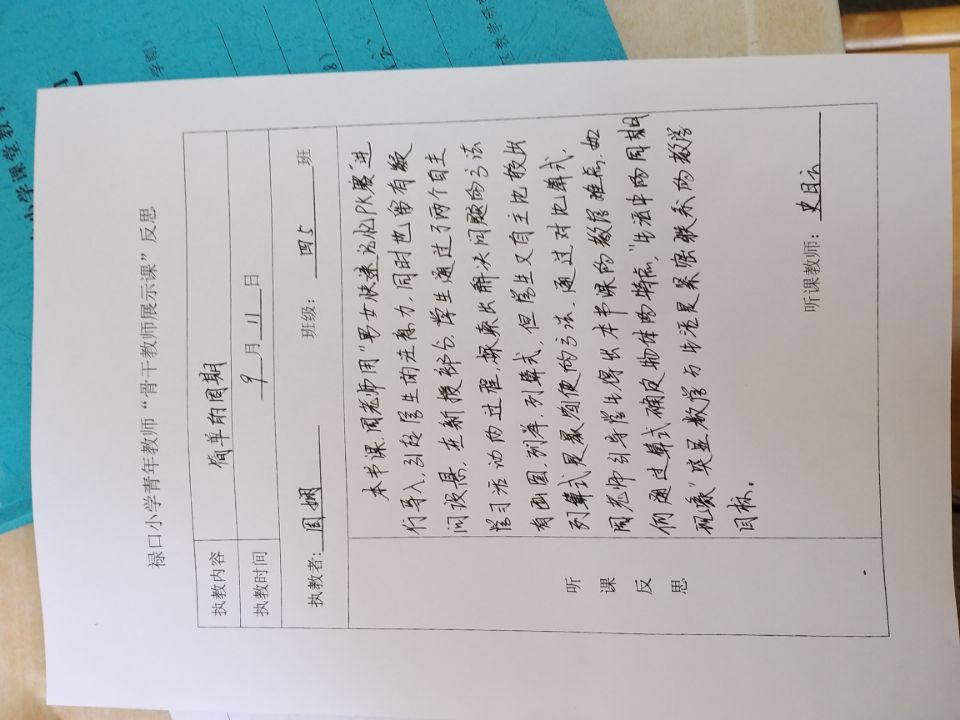 小学课堂教学
禄口小学青年教师“骨干教师展示课”反思
执教内容 简单的周期
执教时间 9 月 11 日
执教者: 周娴 班级: 四5 班
听课反思
本节课,周老师用“男女快速记忆PK赛”进
行导入,引起学生的注意力,同时也留有疑
问设悬。在新授部分,学生通过了两个自主
学习活动的过程,探索出解决问题的方法
有画图、列举、列算式,但学生又自主地投出
列算式是最简便的方法。通过对比算式,
周老师引导学生得出本书课的教学难点,如
何通过算式确定物体的特点。“生活中的周期
现象”突显数学与生活是紧密联系的教学
目标。
听课教师: